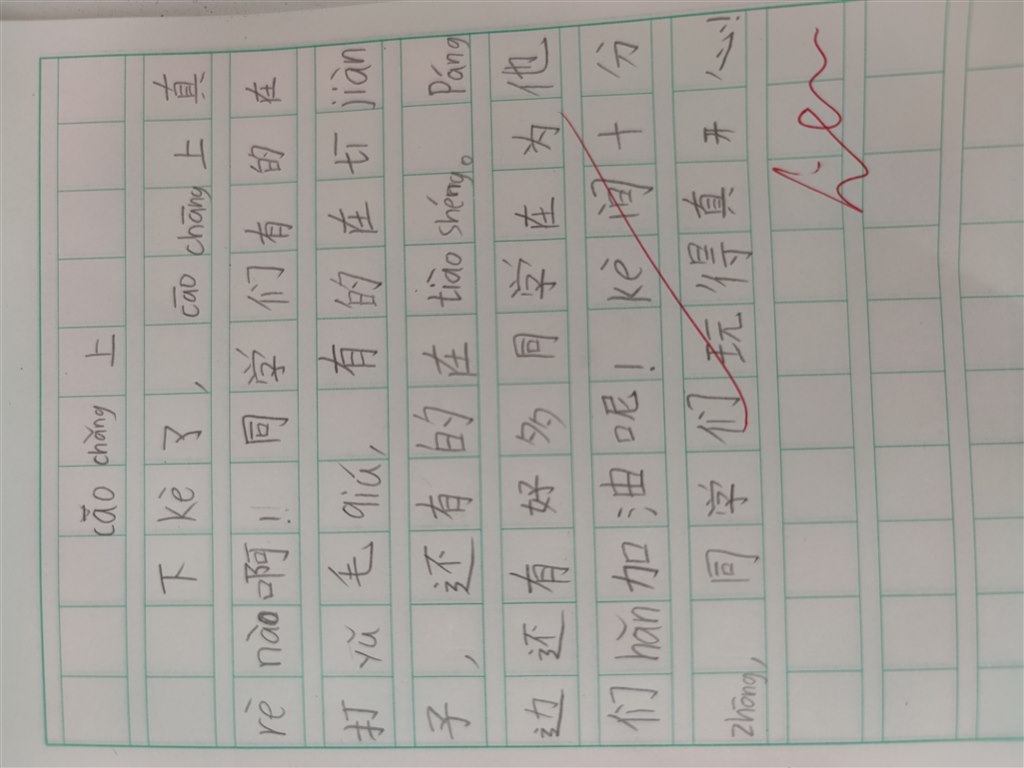 cāo chǎng 上
下kè了，cāo chāng 上真
rè nào 啊！同学们有的在
打 yǔ 毛 qiú，有的在 tī jiàn
子，还有的在 tiào shéng。Páng
边还有好多同学在为他
们 hǎn 加油呢！kè 间十分
zhōng，同学们玩得真开心！